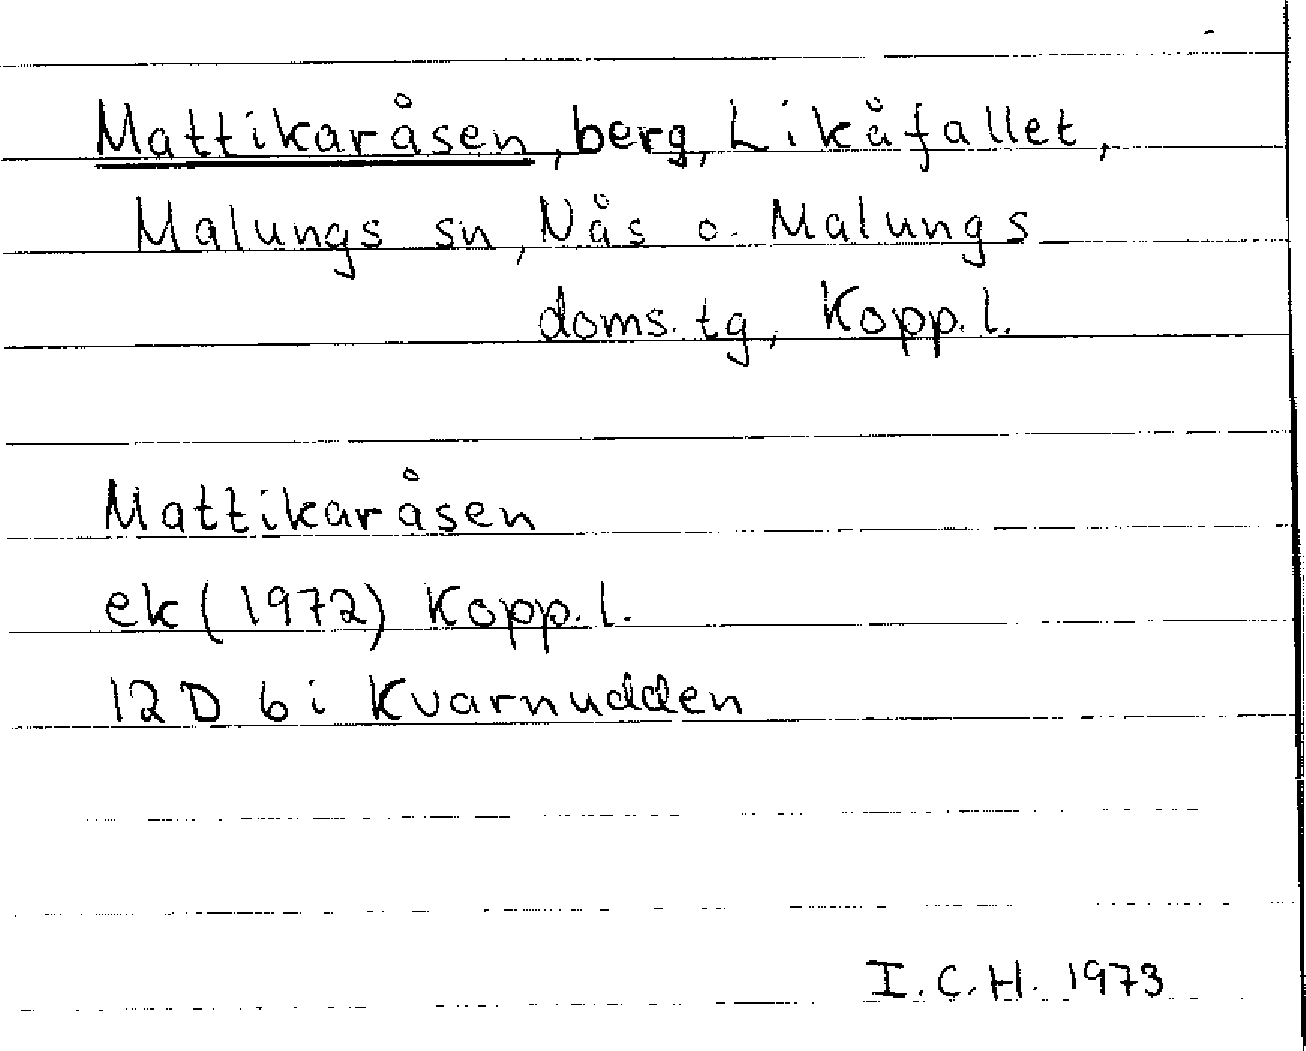 Mattikaråsen, berg, Likåfallet,
Malungs sn, Nås o. Malungs
doms. tg, Kopp. l.
Mattikaråsen
ek (1972) Kopp. l.
12 D 6 i Kvarnudden
I. C. H. 1973